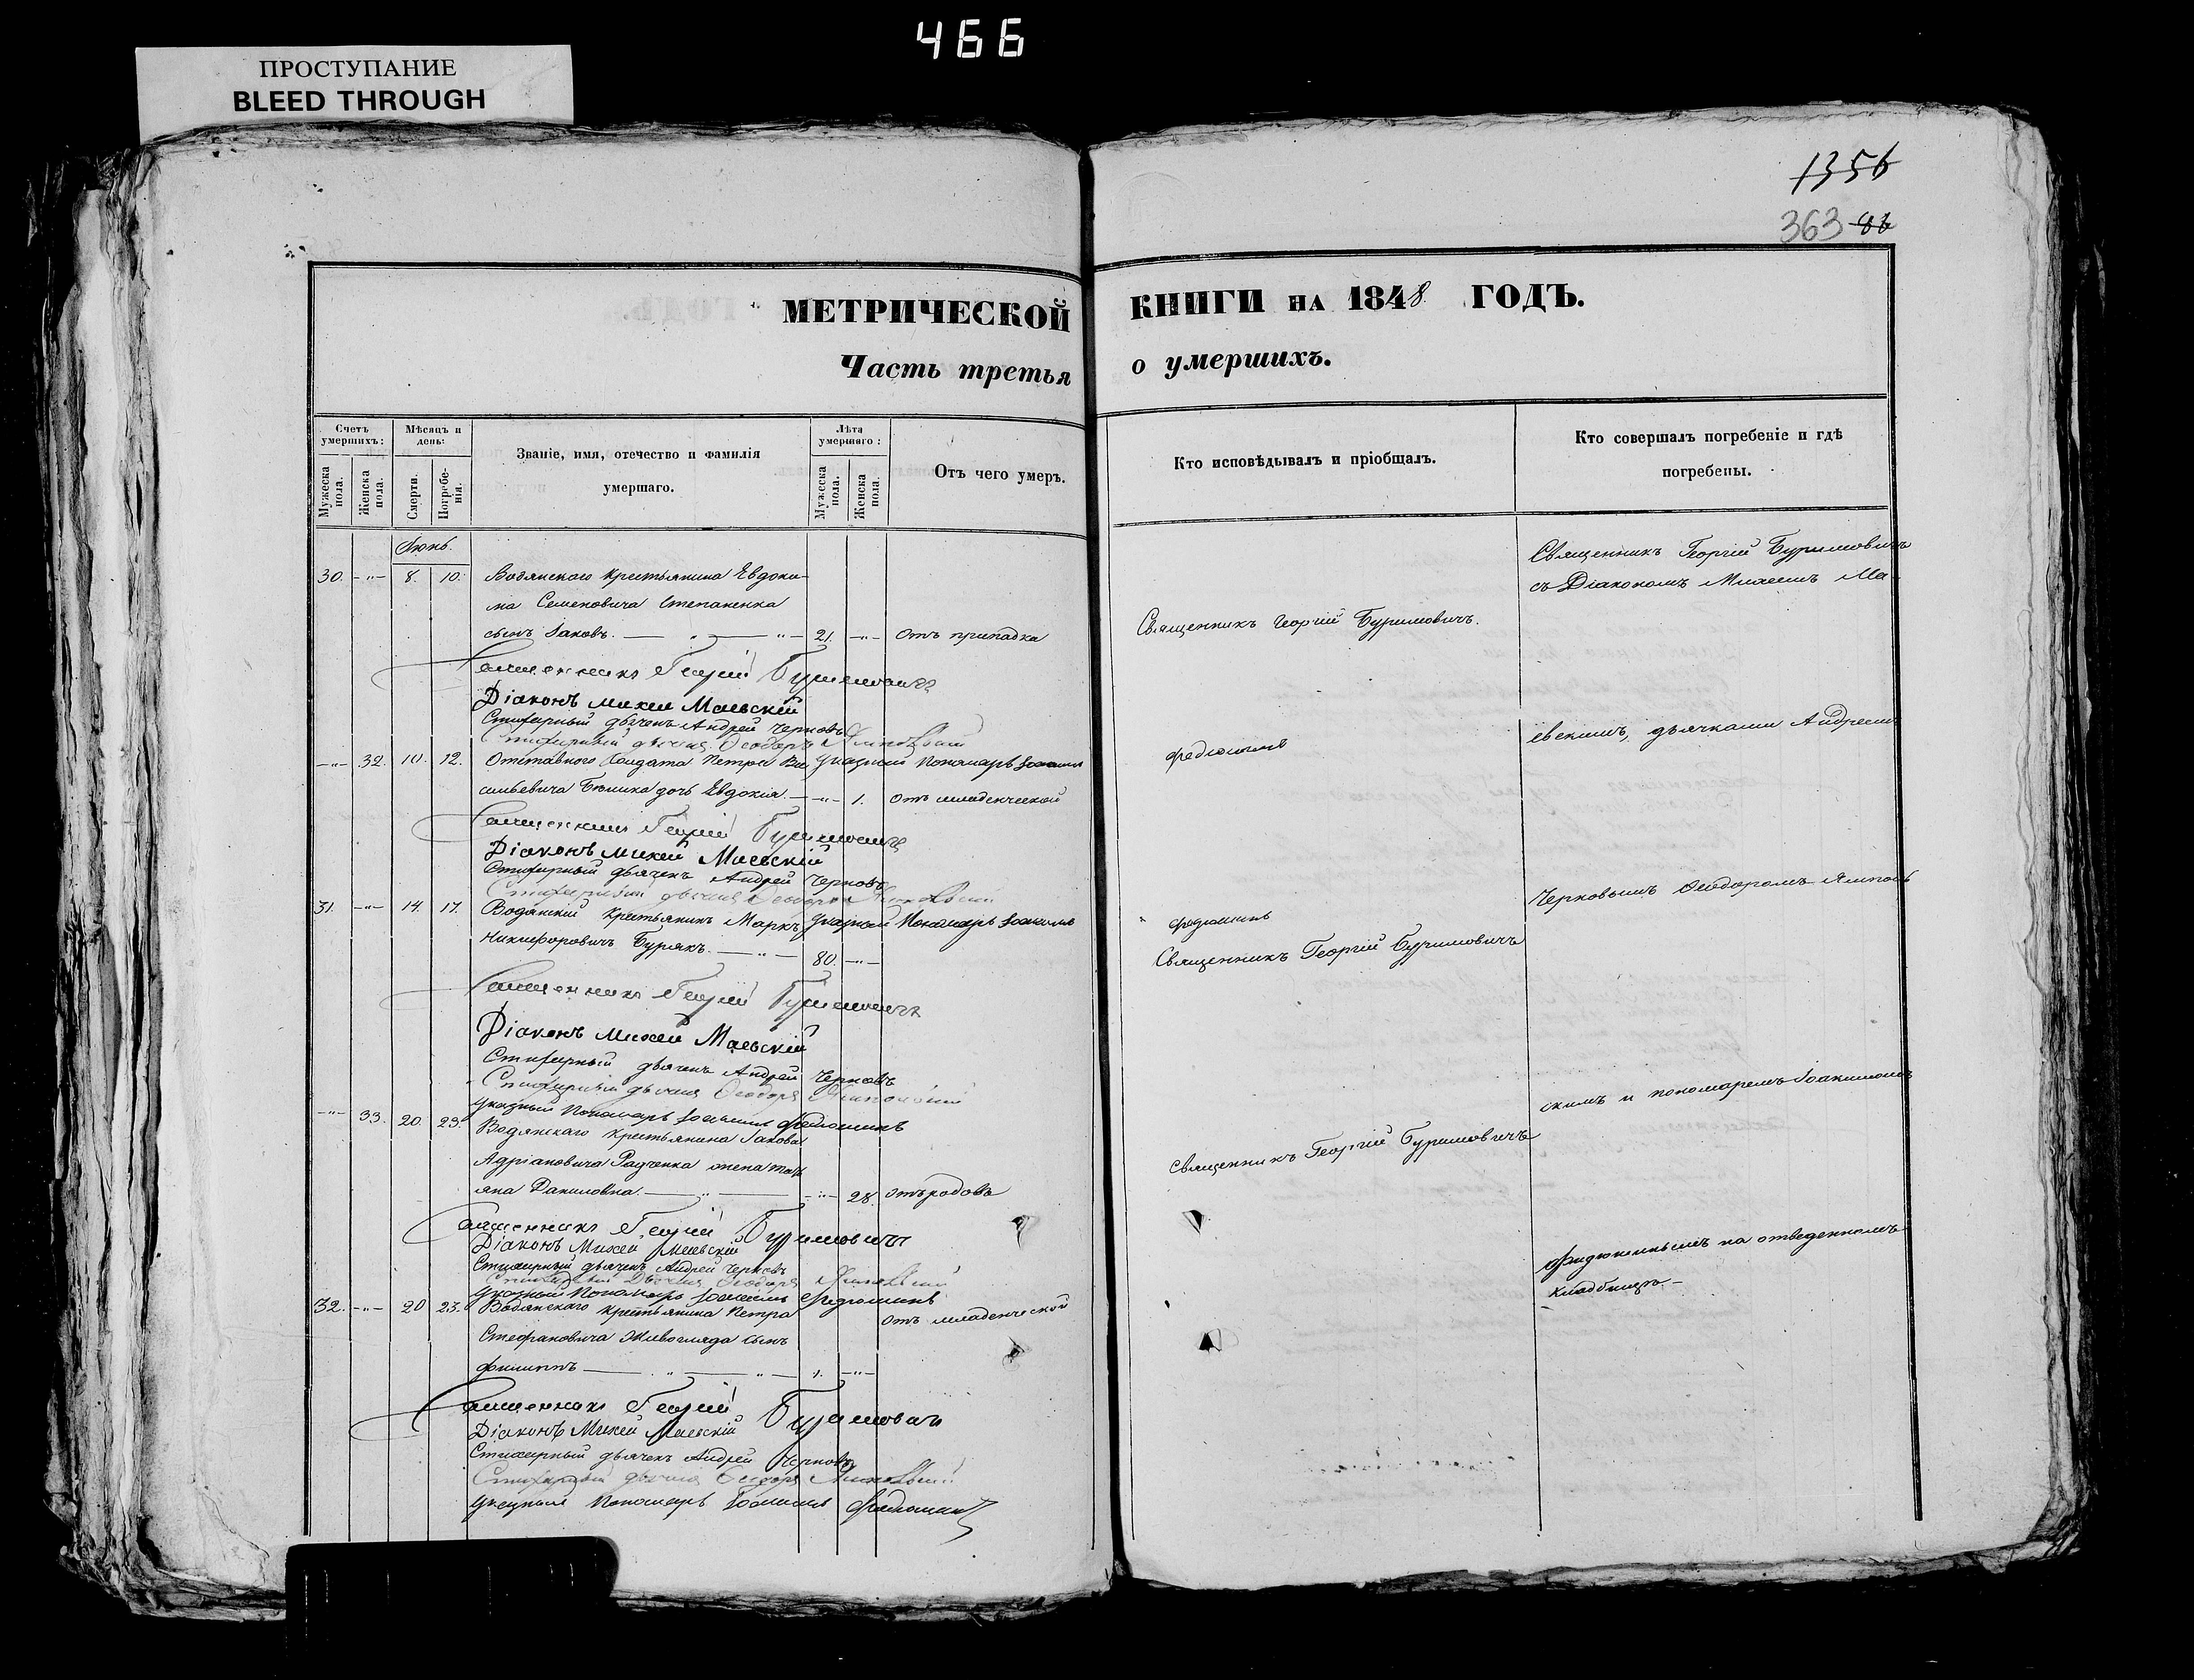 466
ПРОСТУПАНИЕ
BLEED THROUGH
1356
363 86
МЕТРИЧЕСКОЙ
Часть третья
Счетъ умершихъ:
Мужеска пола.
Женска пола.
Мѣсяцъ и день:
Смерти.
Погребенія.
Званіе, имя, отечество и фамилія
умершаго.
Лѣта умершаго:
Мужеска пола.
Женска пола.
Отъ чего умеръ.
Іюнь.
30. -"- 8. 10. Водянскаго крестьянина Евдоки-
ма Семеновича Степаненка
сынъ Іаковъ. 21. -"- отъ припадка
Священникъ Георгій Буримовичъ
Діаконъ Михей Маевскій
Стихарный дьячекъ Андрей Черновъ
Стихарный дьячекъ Ѳеодоръ
-"- 32. 10. 12. Отставного Солдата Петра Ва Указный Пономарь Іоакимъ
сильевича дочь Евдокія -"- 1. отъ младенческой
Священникъ Георгій Буримовичъ
Діаконъ Михей Маевскій
Стихарный дьячекъ Андрей Черновъ
Стихарный дьячекъ Ѳеодоръ
31. -"- 14. 17. Водянскій крестьянинъ Маркъ Указный Пономарь Іоакимъ
Никифоровичъ Бурякъ. 80. -"-
Священникъ Георгій Буримовичъ
Діаконъ Михей Маевскій
Стихарный дьячекъ Андрей Черновъ
Стихарный дьячекъ Ѳеодоръ
Указный Пономарь Іоакимъ Федюшинъ
-"- 33. 20. 23. Водянскаго крестьянина Іакова
Адріановича Радченка жена Тать
яна Даниловна. -"- 28. отъ родовъ
Священникъ Георгій Буримовичъ
Діаконъ Михей Маевскій
Стихарный дьячекъ Андрей Черновъ
Стихарный Дьячекъ Ѳеодоръ
Указный Пономарь Іоакимъ Федюшинъ
32. -"- 20 23. Водянскаго крестьянина Петра отъ младенческой
Стефановича Живогляда сынъ
Филиппъ 1. -"-
Священникъ Георгій Буримовичъ
Діаконъ Михей Маевскій
Стихарный дьячекъ Андрей Черновъ
Стихарный дьячекъ Ѳеодоръ
Указный Пономарь Іоакимъ Федюшинъ
КНИГИ НА 1848 ГОДЪ.
о умершихъ.
Кто исповѣдывалъ и пріобщалъ.
Кто совершалъ погребеніе и гдѣ
погребены.
Священникъ Георгій Буримовичъ
съ Діакономъ Михеемъ Ма-
Священникъ Георгій Буримовичъ.
евскимъ, дьячками Андреемъ
Федюшинъ
Черновымъ Ѳеодоромъ Ямполь
Федюшинъ
Священникъ Георгій Буримовичъ
скимъ и пономаремъ Іоакимомъ
Священникъ Георгій Буримовичъ
Федюшинымъ на отведенномъ
кладбищѣ.